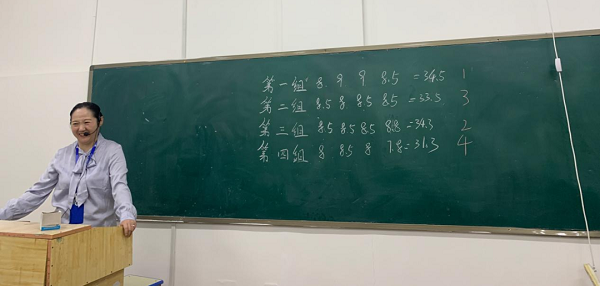 第一组 8. 9 9 8.5 =34.5 1
第二组 8.5 8 8.5 8.5 =33.5 3
第三组 8.5 8.5 8.5 8.8 =34.3 2
第四组 8 8.5 8 7.8=31.3 4